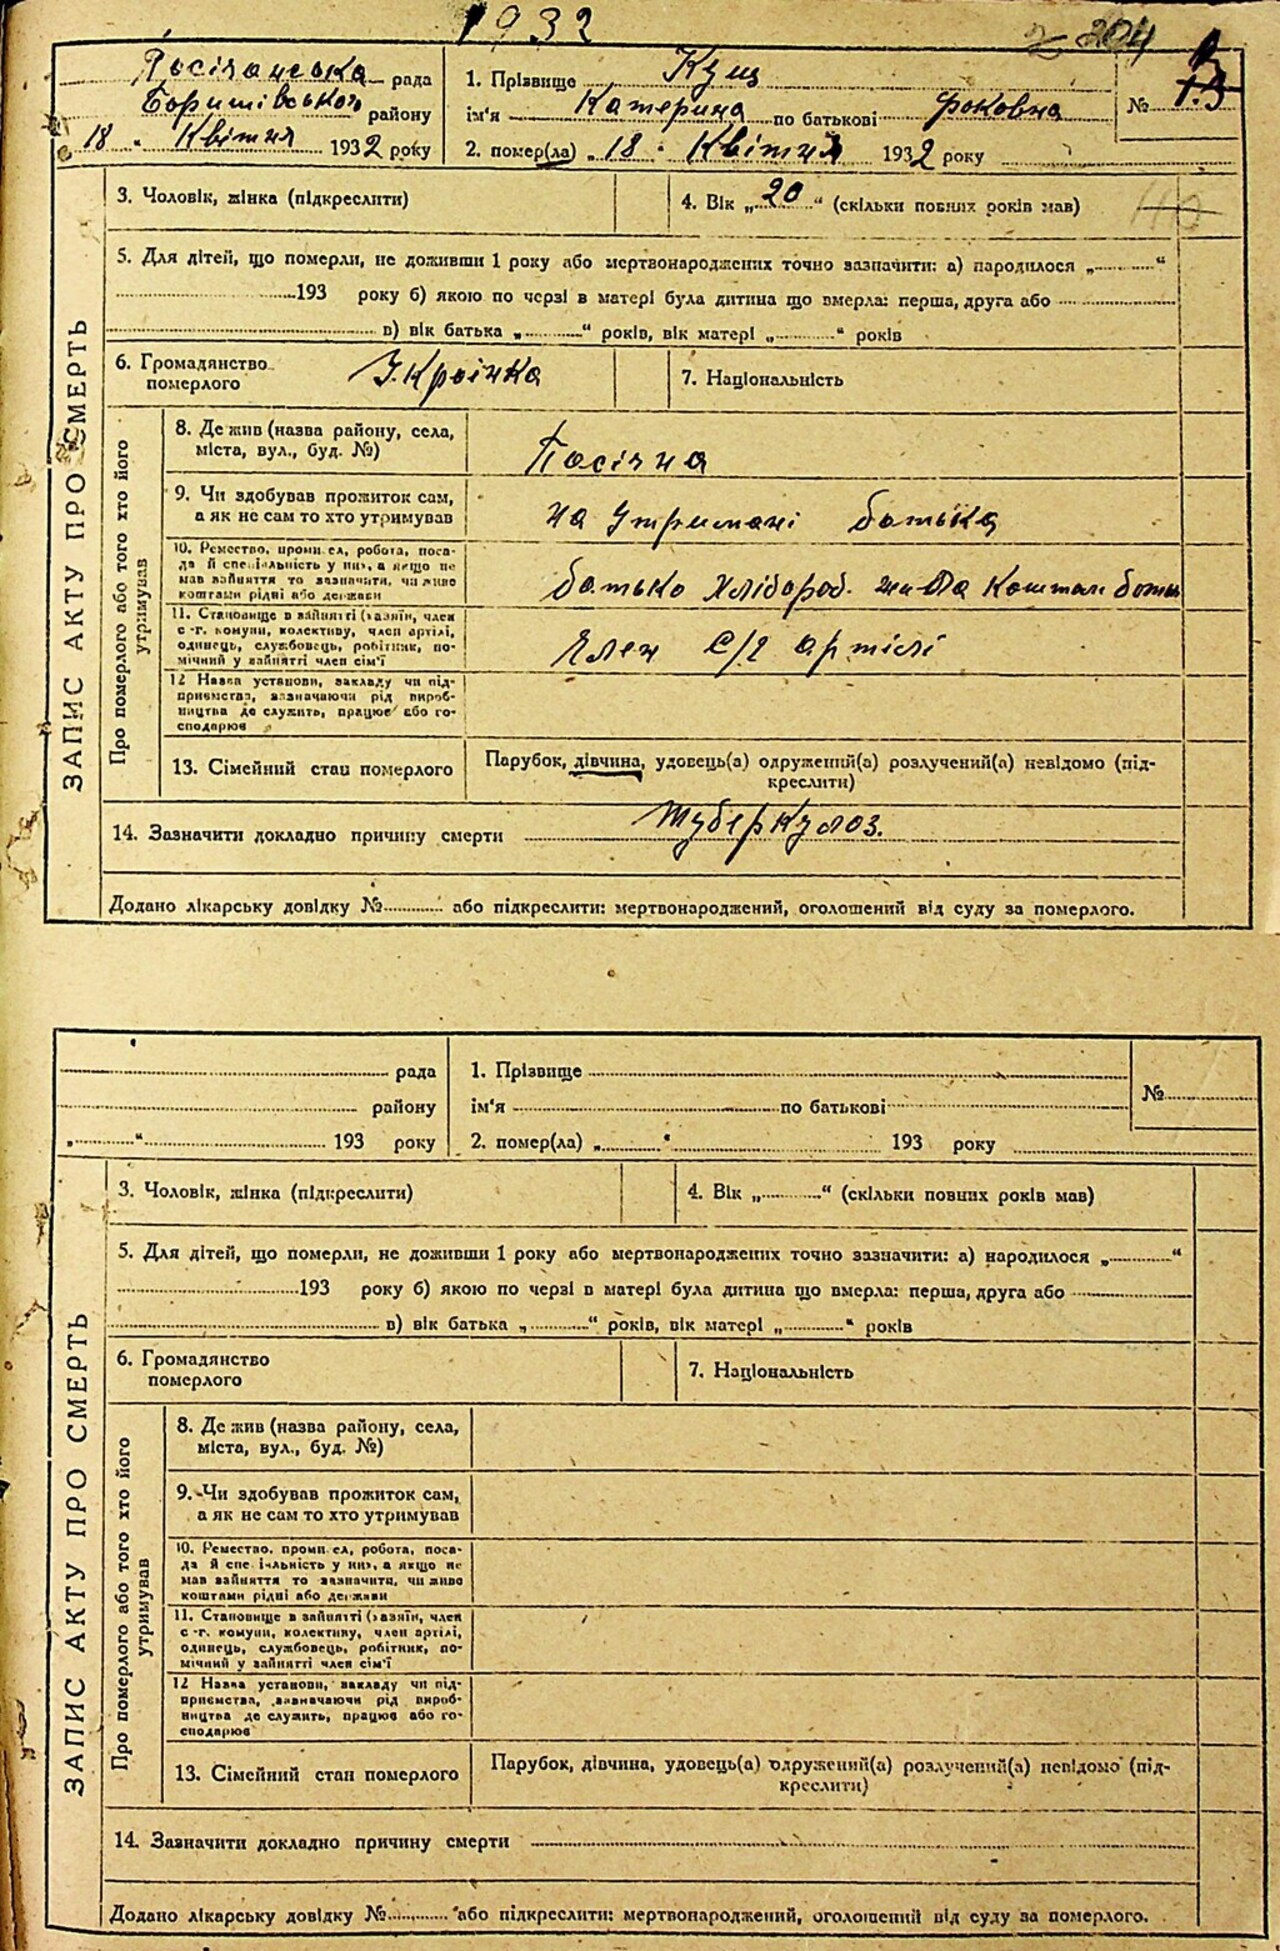 1932
204
Посічанська рада
району
18 " Квітня 1932 року
1. Прізвище Кущ
ім'я Катерина по батькові Фоковна
№ 13
2. помер(ла) „ 18 " Квітня 1932 року
ЗАПИС АКТУ ПРО СМЕРТЬ
3. Чоловік, жінка (підкреслити)
4. Вік „ 20 “ (скільки повних років мав)
5. Для дітей, що померли, не доживши 1 року або мертвонароджених точно зазначити: а) народилося „ “
193 року б) якою по черзі в матері була дитина що вмерла: перша, друга або
в) вік батька „ “ років, вік матері „ “ років
6. Громадянство
померлого
Українка
7. Національність
Про померлого або того хто його
утримував
8. Де жив (назва району, села,
міста, вул., буд. №)
Посічна
9. Чи здобував прожиток сам,
а як не сам то хто утримував
на утримані батька
10. Ремество, промисел, робота, поса-
да й спеціяльність у них, а якщо не
мав зайняття то зазначити, чи живе
коштами рідні або держави
батько Хлібороб
11. Становище в зайнятті (хазяїн, член
с.-г. комуни, колективу, член артілі,
одинець, службовець, робітник, по-
мічний у зайнятті член сім'ї
Член С/г артілі
12 Назва установи, закладу чи під-
приємства, зазначаючи рід вироб-
ництва де служить, працює або го-
сподарює
13. Сімейний стан померлого
Парубок, дівчина, удовець(а) одружений(а) розлучений(а) невідомо (під-
креслити)
14. Зазначити докладно причину смерти Туберкульоз.
Додано лікарську довідку № або підкреслити: мертвонароджений, оголошений від суду за померлого.
рада
району
„ “ 193 року
1. Прізвище
ім'я по батькові
№
2. помер(ла) „ “ 193 року
ЗАПИС АКТУ ПРО СМЕРТЬ
3. Чоловік, жінка (підкреслити)
4. Вік „ “ (скільки повних років мав)
5. Для дітей, що померли, не доживши 1 року або мертвонароджених точно зазначити: а) народилося „ “
193 року б) якою по черзі в матері була дитина що вмерла: перша, друга або
в) вік батька „ “ років, вік матері „ “ років
6. Громадянство
померлого
7. Національність
Про померлого або того хто його
утримував
8. Де жив (назва району, села,
міста, вул., буд. №)
9. Чи здобував прожиток сам,
а як не сам то хто утримував
10. Ремество, промисел, робота, поса-
да й спеціяльність у них, а якщо не
мав зайняття то зазначити, чи живе
коштами рідні або держави
11. Становище в зайнятті (хазяїн, член
с.-г. комуни, колективу, член артілі,
одинець, службовець, робітник, по-
мічний у зайнятті член сім'ї
12 Назва установи, закладу чи під-
приємства, зазначаючи рід вироб-
ництва де служить, працює або го-
сподарює
13. Сімейний стан померлого
Парубок, дівчина, удовець(а) одружений(а) розлучений(а) невідомо (під-
креслити)
14. Зазначити докладно причину смерти
Додано лікарську довідку № або підкреслити: мертвонароджений, оголошений від суду за померлого.